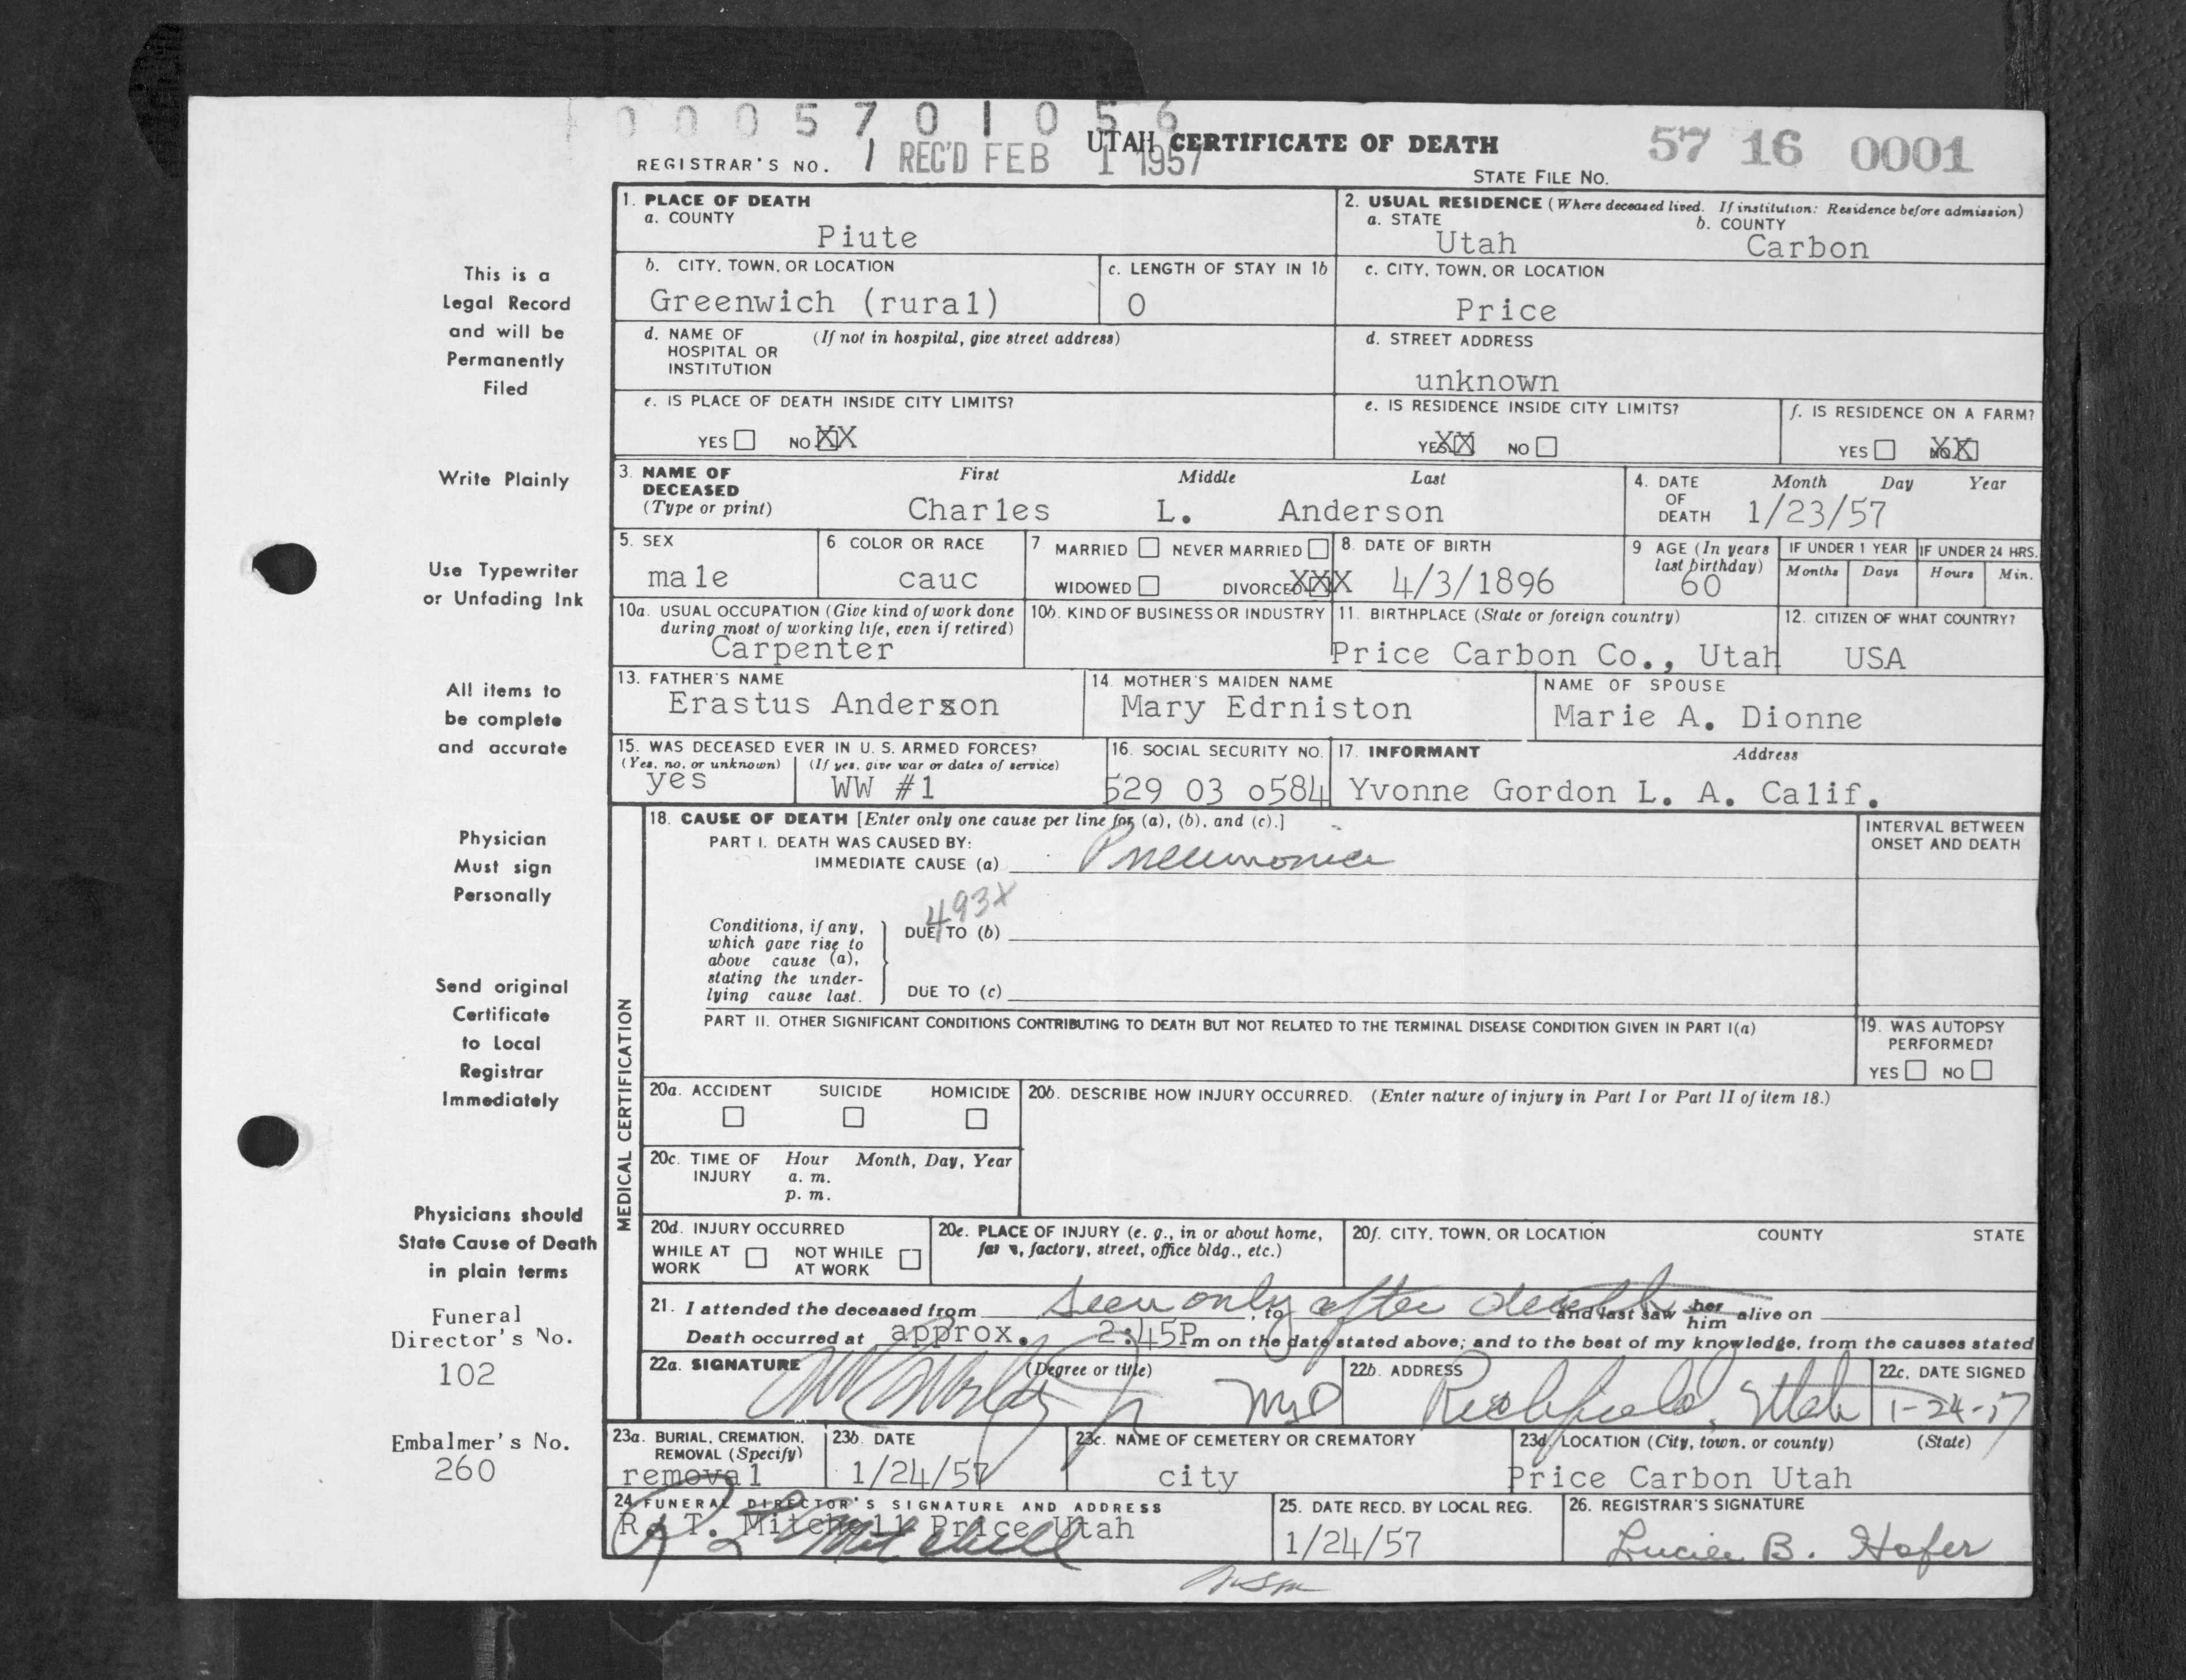 0005701056
UTAH CERTIFICATE OF DEATH
57 16 0001
REGISTRAR'S NO. 1 REC'D FEB 1 1957
STATE FILE NO.
1. PLACE OF DEATH
a. COUNTY
Piute
2. USUAL RESIDENCE (Where deceased lived. If institution: Residence before admission)
a. STATE b. COUNTY
Utah Carbon
b. CITY, TOWN, OR LOCATION
Greenwich (rural)
c. LENGTH OF STAY IN 1b
0
c. CITY, TOWN, OR LOCATION
Price
d. NAME OF HOSPITAL OR INSTITUTION (If not in hospital, give street address)
d. STREET ADDRESS
unknown
e. IS PLACE OF DEATH INSIDE CITY LIMITS?
YES NO XX
e. IS RESIDENCE INSIDE CITY LIMITS?
YES XX NO
f. IS RESIDENCE ON A FARM?
YES NO XX
3. NAME OF DECEASED (Type or print)
First Middle Last
Charles L. Anderson
4. DATE OF DEATH
Month Day Year
1/23/57
5. SEX
male
6 COLOR OR RACE
cauc
7 MARRIED NEVER MARRIED
WIDOWED DIVORCED XXX
8. DATE OF BIRTH
4/3/1896
9 AGE (In years last birthday)
60
IF UNDER 1 YEAR IF UNDER 24 HRS.
Months Days Hours Min.
10a. USUAL OCCUPATION (Give kind of work done during most of working life, even if retired)
Carpenter
10b. KIND OF BUSINESS OR INDUSTRY
11. BIRTHPLACE (State or foreign country)
Price Carbon Co., Utah
12. CITIZEN OF WHAT COUNTRY?
USA
13. FATHER'S NAME
Erastus Anderson
14. MOTHER'S MAIDEN NAME
Mary Edrniston
NAME OF SPOUSE
Marie A. Dionne
15. WAS DECEASED EVER IN U. S. ARMED FORCES?
(Yes, no, or unknown) (If yes, give war or dates of service)
yes WW #1
16. SOCIAL SECURITY NO.
529 03 0584
17. INFORMANT Address
Yvonne Gordon L. A. Calif.
MEDICAL CERTIFICATION
18. CAUSE OF DEATH [Enter only one cause per line for (a), (b), and (c).]
PART I. DEATH WAS CAUSED BY:
IMMEDIATE CAUSE (a) Pneumonia
INTERVAL BETWEEN ONSET AND DEATH
493X
Conditions, if any, which gave rise to above cause (a), stating the underlying cause last.
DUE TO (b)
DUE TO (c)
PART II. OTHER SIGNIFICANT CONDITIONS CONTRIBUTING TO DEATH BUT NOT RELATED TO THE TERMINAL DISEASE CONDITION GIVEN IN PART I(a)
19. WAS AUTOPSY PERFORMED?
YES NO
20a. ACCIDENT SUICIDE HOMICIDE
20b. DESCRIBE HOW INJURY OCCURRED. (Enter nature of injury in Part I or Part II of item 18.)
20c. TIME OF INJURY Hour Month, Day, Year
a. m.
p. m.
20d. INJURY OCCURRED
WHILE AT WORK NOT WHILE AT WORK
20e. PLACE OF INJURY (e. g., in or about home, farm, factory, street, office bldg., etc.)
20f. CITY, TOWN, OR LOCATION COUNTY STATE
21. I attended the deceased from seen only after death, to and last saw her him alive on
Death occurred at approx. 2:45P m on the date stated above; and to the best of my knowledge, from the causes stated
22a. SIGNATURE (Degree or title)
MD
22b. ADDRESS
Richfield, Utah
22c. DATE SIGNED
1-24-57
23a. BURIAL, CREMATION, REMOVAL (Specify)
removal
23b. DATE
1/24/57
23c. NAME OF CEMETERY OR CREMATORY
city
23d. LOCATION (City, town, or county) (State)
Price Carbon Utah
24 FUNERAL DIRECTOR'S SIGNATURE AND ADDRESS
R. T. Mitchell Price Utah
R T Mitchell
25. DATE RECD. BY LOCAL REG.
1/24/57
26. REGISTRAR'S SIGNATURE
Lucile B. Hofer
This is a
Legal Record
and will be
Permanently
Filed
Write Plainly
Use Typewriter
or Unfading Ink
All items to
be complete
and accurate
Physician
Must sign
Personally
Send original
Certificate
to Local
Registrar
Immediately
Physicians should
State Cause of Death
in plain terms
Funeral
Director's No.
102
Embalmer's No.
260